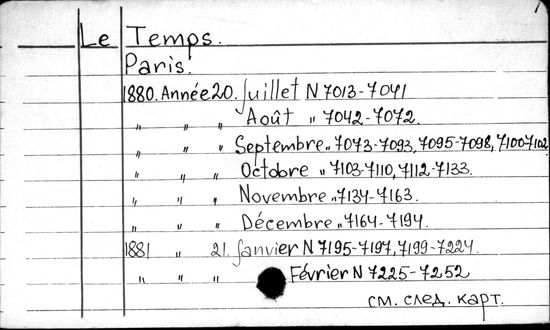 Le Temps.
Paris.
1880. Année 20. Juillet N 7013-7041
" " " Août " 7042-7072.
" " " Septembre " 7073-7093, 7095-7098, 7100 7102
" " " Octobre " 7103-7110, 7112-7133.
" " " Novembre " 7134-7163.
" " " Décembre " 7164-7194.
1881 " 21. Janvier N 7195-7197, 7199-7224.
" " " Février N 7225-7252
см. след. карт.